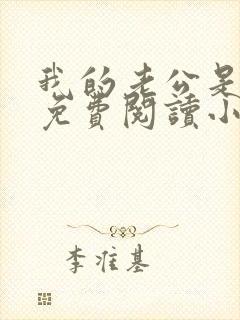 我的老公是
免費閱讀小
李准基